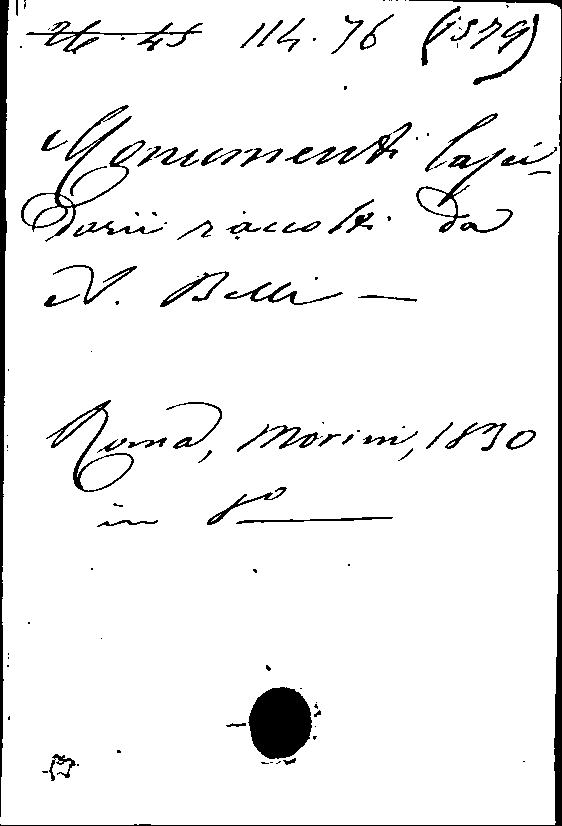 26. 45 114. 76 (1579)
Monumenti lapi-
darii raccolti da
N. Belli —
Roma, Morini, 1830
in 8º